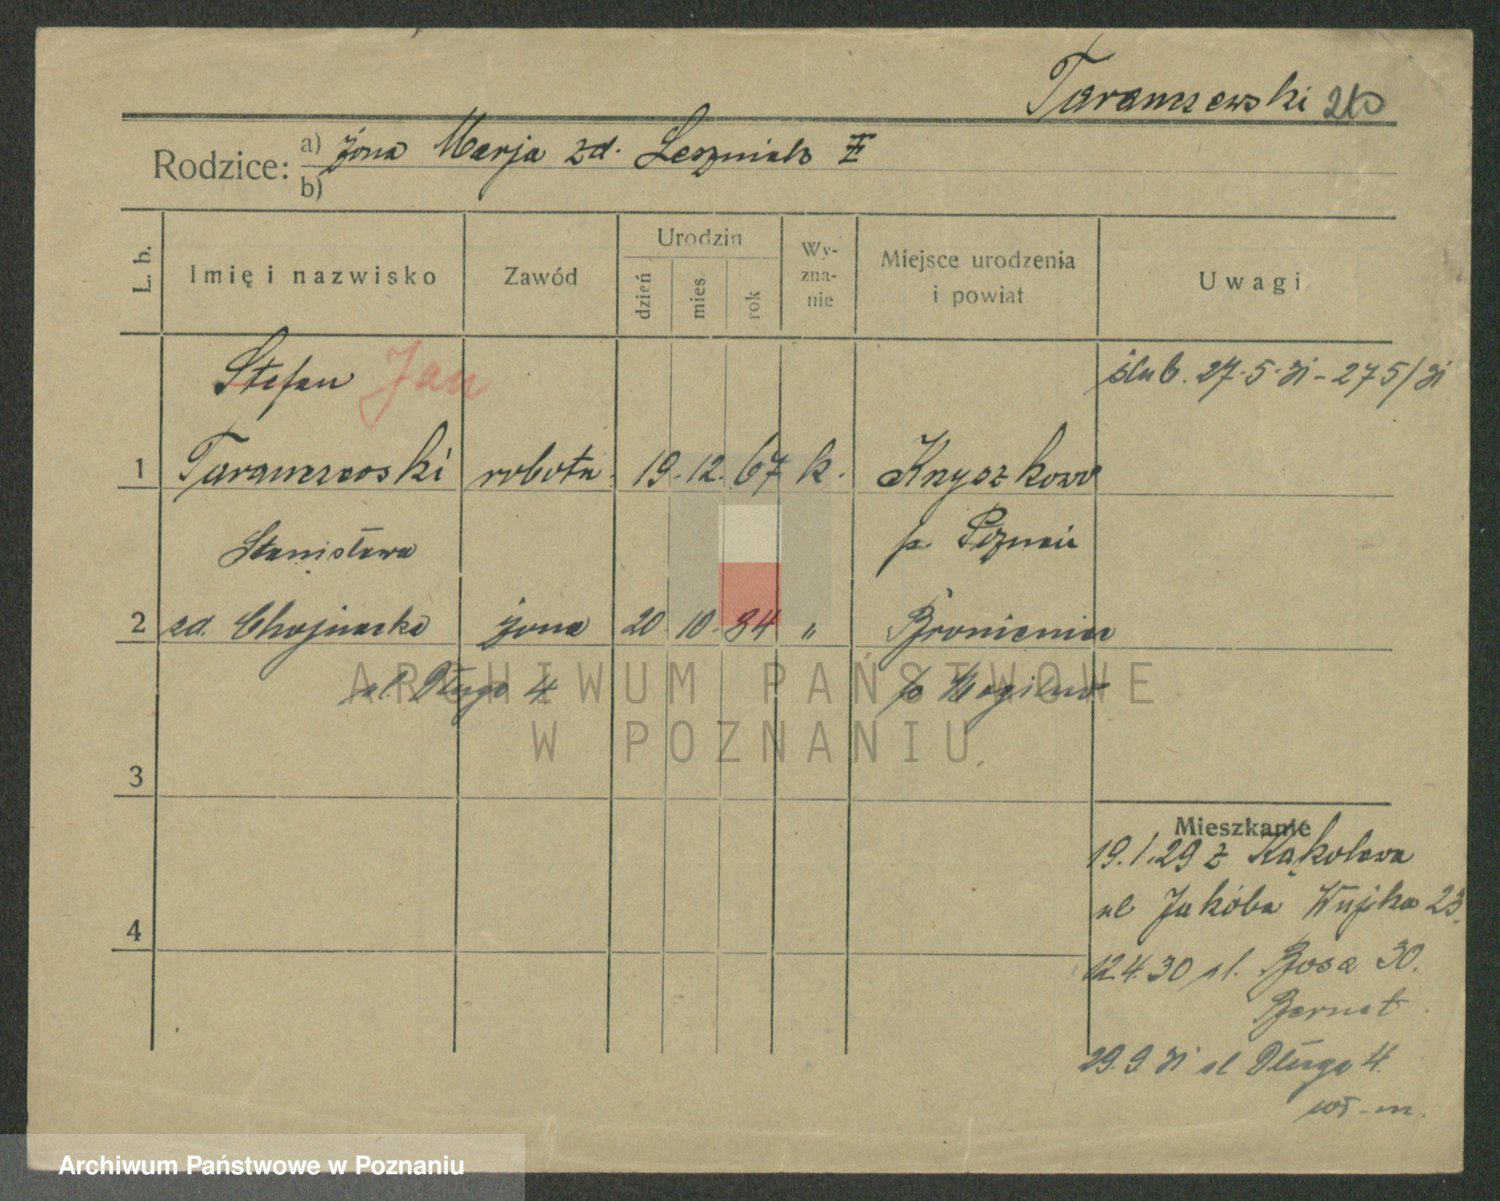 Taramszewski 210
Rodzice: a) żona Marja zd. Leszniak
b)
L. b.
Imię i nazwisko
Zawód
Urodzin
dzień
mies.
rok
Wy-
zna-
nie
Miejsce urodzenia
i powiat
Uwagi
Stefan Jan
ślub. 27.5.31 - 275/31
1 robotn. 19. 12. 67 k.
Stanisława
p. Poznań
2 zd. Chojnacka żona 20 10. 84 "
ul. Długa 4
p. Mogilno
ARCHIWUM PAŃSTWOWE
W POZNANIU
3
Mieszkanie
19.1.29 z Kąkolewa
4
ul Jakóba Wujka 23.
12.4.30 ul. Rosa 30.
Bernat
29.9 31 ul Długa 4.
Archiwum Państwowe w Poznaniu